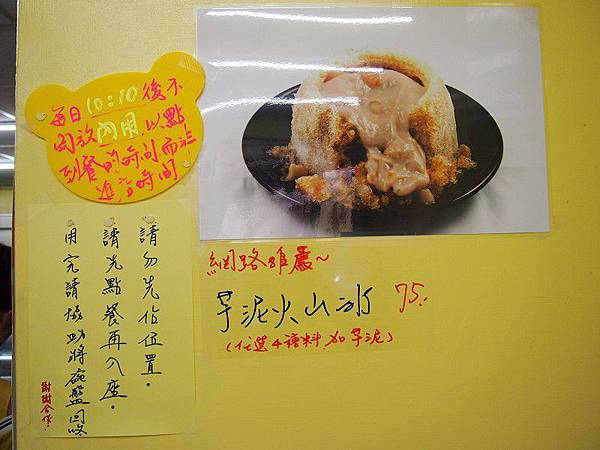 每日10:10後不
開放內用以點
到餐的時間而非
進店時間
請勿先佔位置。
請先點餐再入座。
用完請協助將碗盤回收
謝謝合作!
網路推薦~
芋泥火山冰 75.
(任選4種料加芋泥)